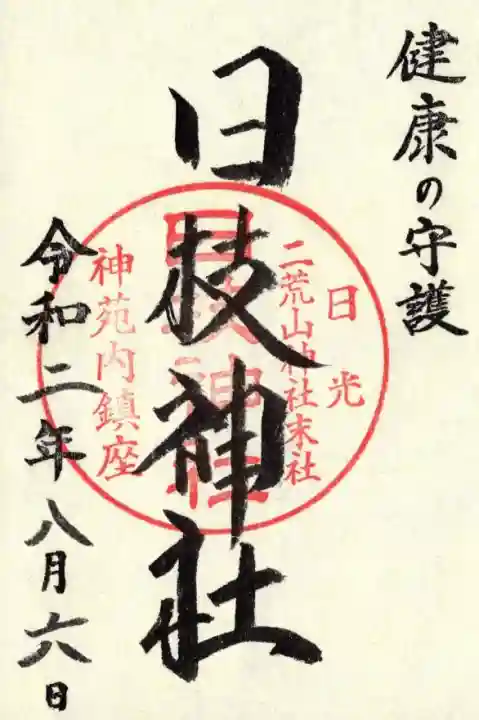 健康の守護
日枝神社
日光
二荒山神社末社
日枝神社
神苑内鎮座
令和二年八月六日